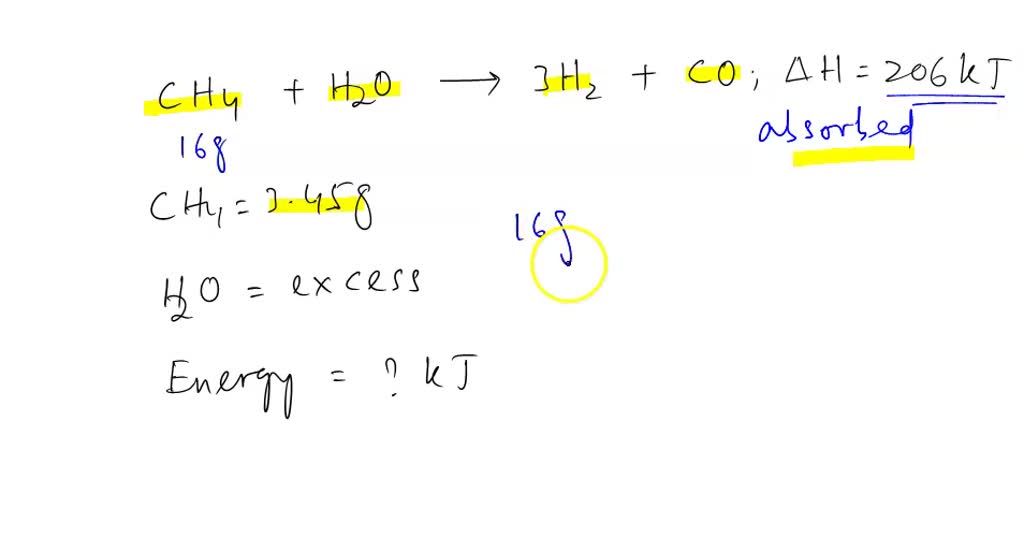 CH4 + H2O → 3H2 + CO; ΔH = 206 kJ
16g
absorbed
CH4 = 3.45g
16g
H2O = excess
Energy = ? kJ